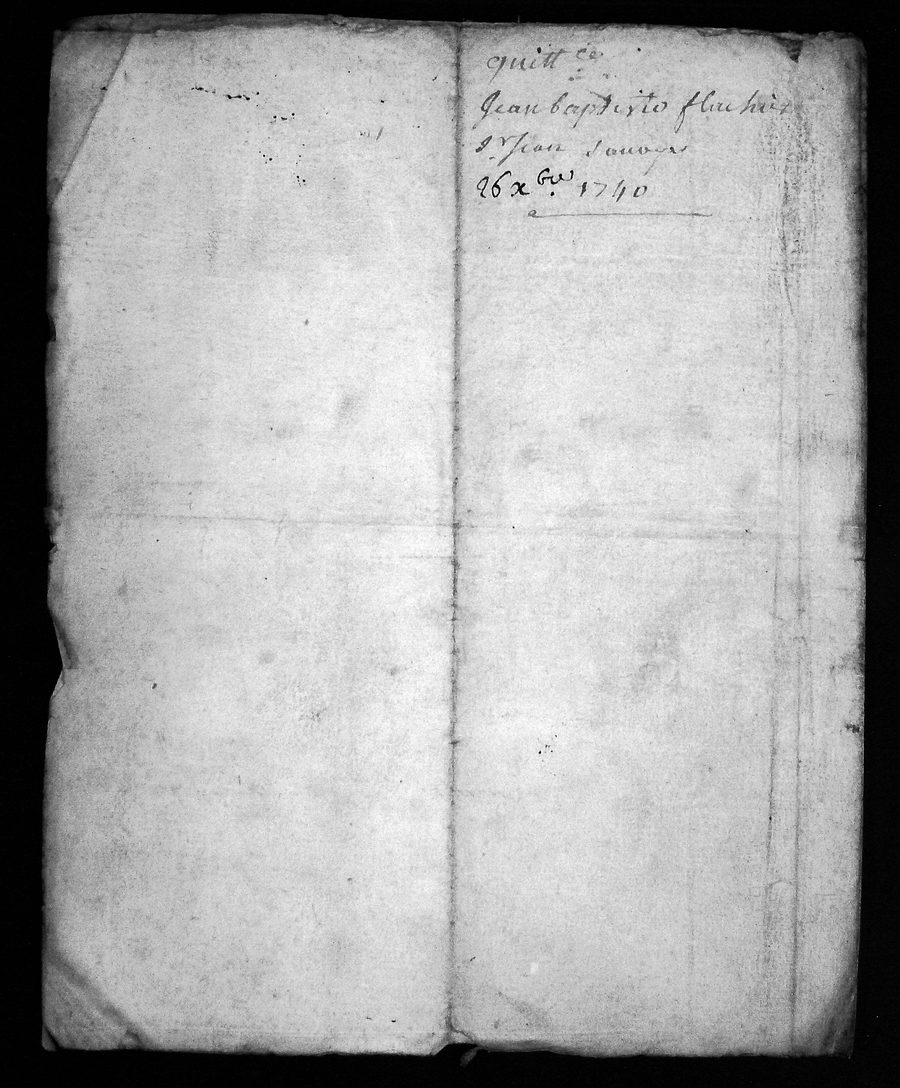 quitt ce
Jean baptiste
Sr Jean Sauvage
26 xbre 1740